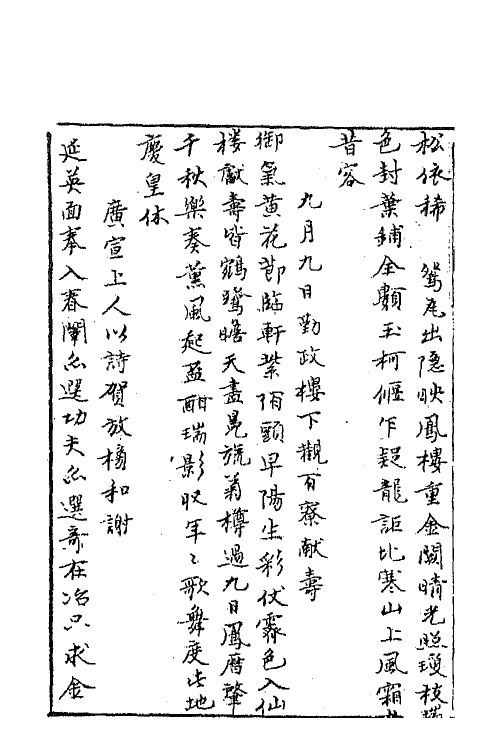 松依稀　鴛瓦出隐映鳳樓重金闕晴光照瓊枝瑞
色封葉鋪全類玉柯偃乍疑龍詎比寒山上風霜
昔容
九月九日勤政樓下觀百寮献壽
御氣黄花節臨軒紫陌頭早陽生彩仗霽色入仙
樓獻壽皆鵷鷺瞻天盡冕旒菊樽過九日鳳曆肇
千秋樂奏薰風起盃酣瑞影收年〻歌舞度此地
慶皇休
廣宣上人以詩賀放榜和謝
延英面奉入春闈亦選功夫亦選奇在冶只求金